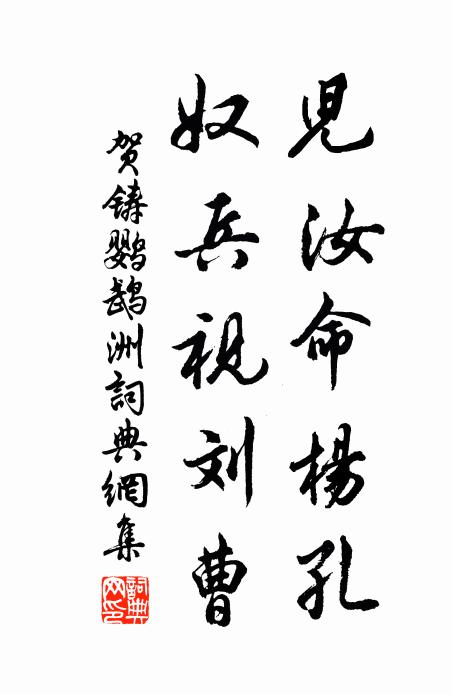 児汝命楊孔
奴兵視刘曹
贺铸鹦鹉洲詞典網集
詞典网印